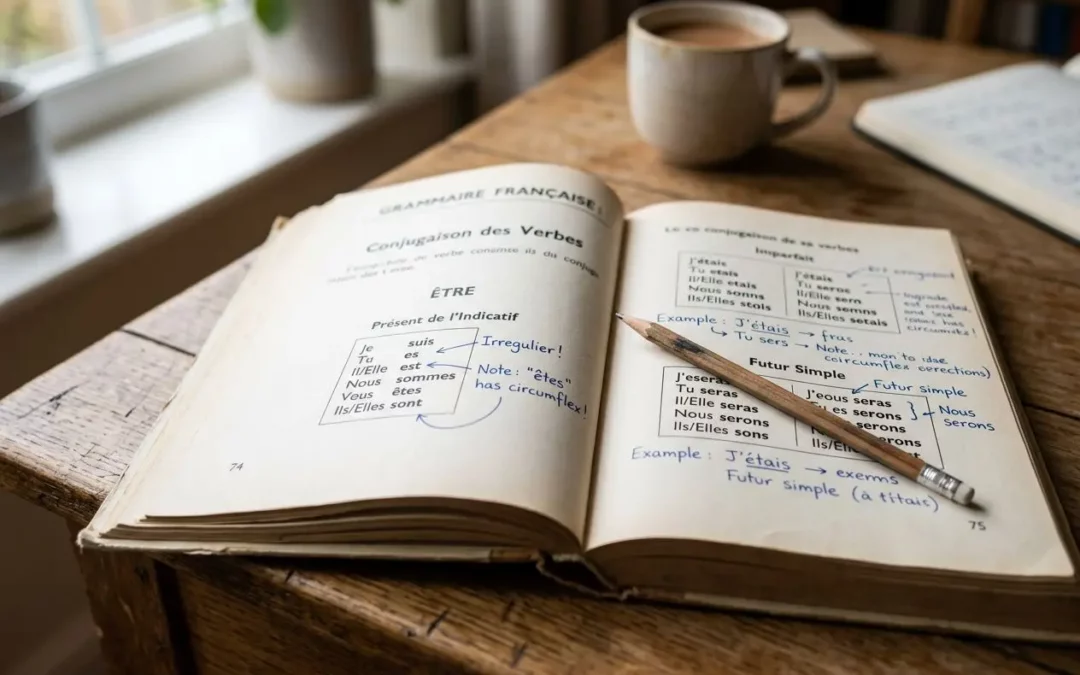 GRAMMAIRE FRANÇAISE:
Conjugaison des Verbes
de verbe du
ÊTRE
Présent de l'Indicatif
Je suis
Tu es
Il/Elle est
Nous sommes
Vous êtes
Ils/Elles sont
Irregulier!
Note: "êtes"
has circumflex!
74
conjugaison de sa verbes
Imparfait
J'étais
Tu etais
Il/Elle etais
Nous somns
Ils/Elles stois
J'étais
Tu seras
Il/Elle sern
Nous somns
Ils/Elles setais
has
Example: J'étais → fras
Tu sers → Note... mon to
Futur Simple
J'eseras
Tu seras
Il/Elle seras
Nous serons
Ils/Elles sons
J'eous seras
es serons
serons
Futur simple
Nous
serons
Example: J'étais → exerms
Futur simple (à títais)
75